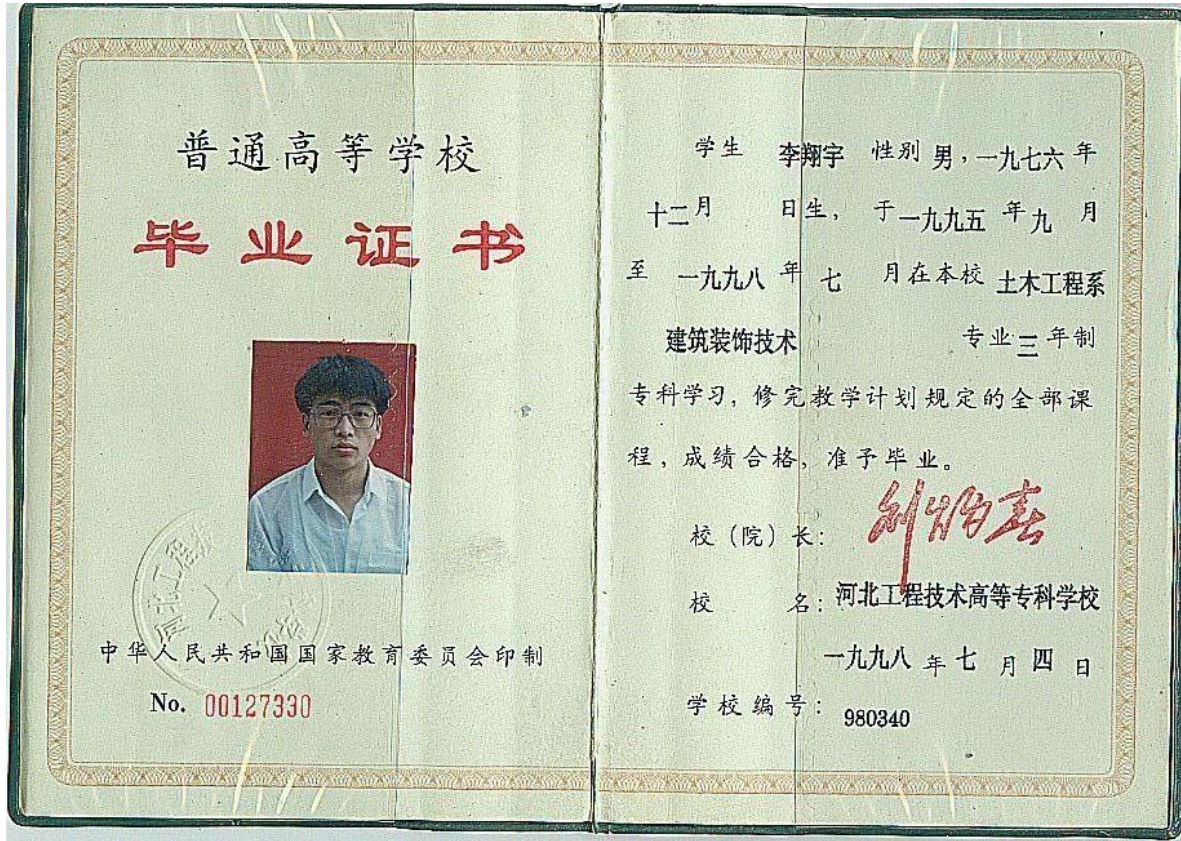 普通高等学校
毕业证书
中华人民共和国国家教育委员会印制
No. 00127330
学生 李翔宇 性别 男,一九七六年
十二月 日生, 于一九九五年九月
至 一九九八年七月在本校 土木工程系
建筑装饰技术 专业三年制
专科学习, 修完教学计划规定的全部课
程, 成绩合格, 准予毕业。
校(院)长:
校 名: 河北工程技术高等专科学校
一九九八年七月四日
学校编号: 980340